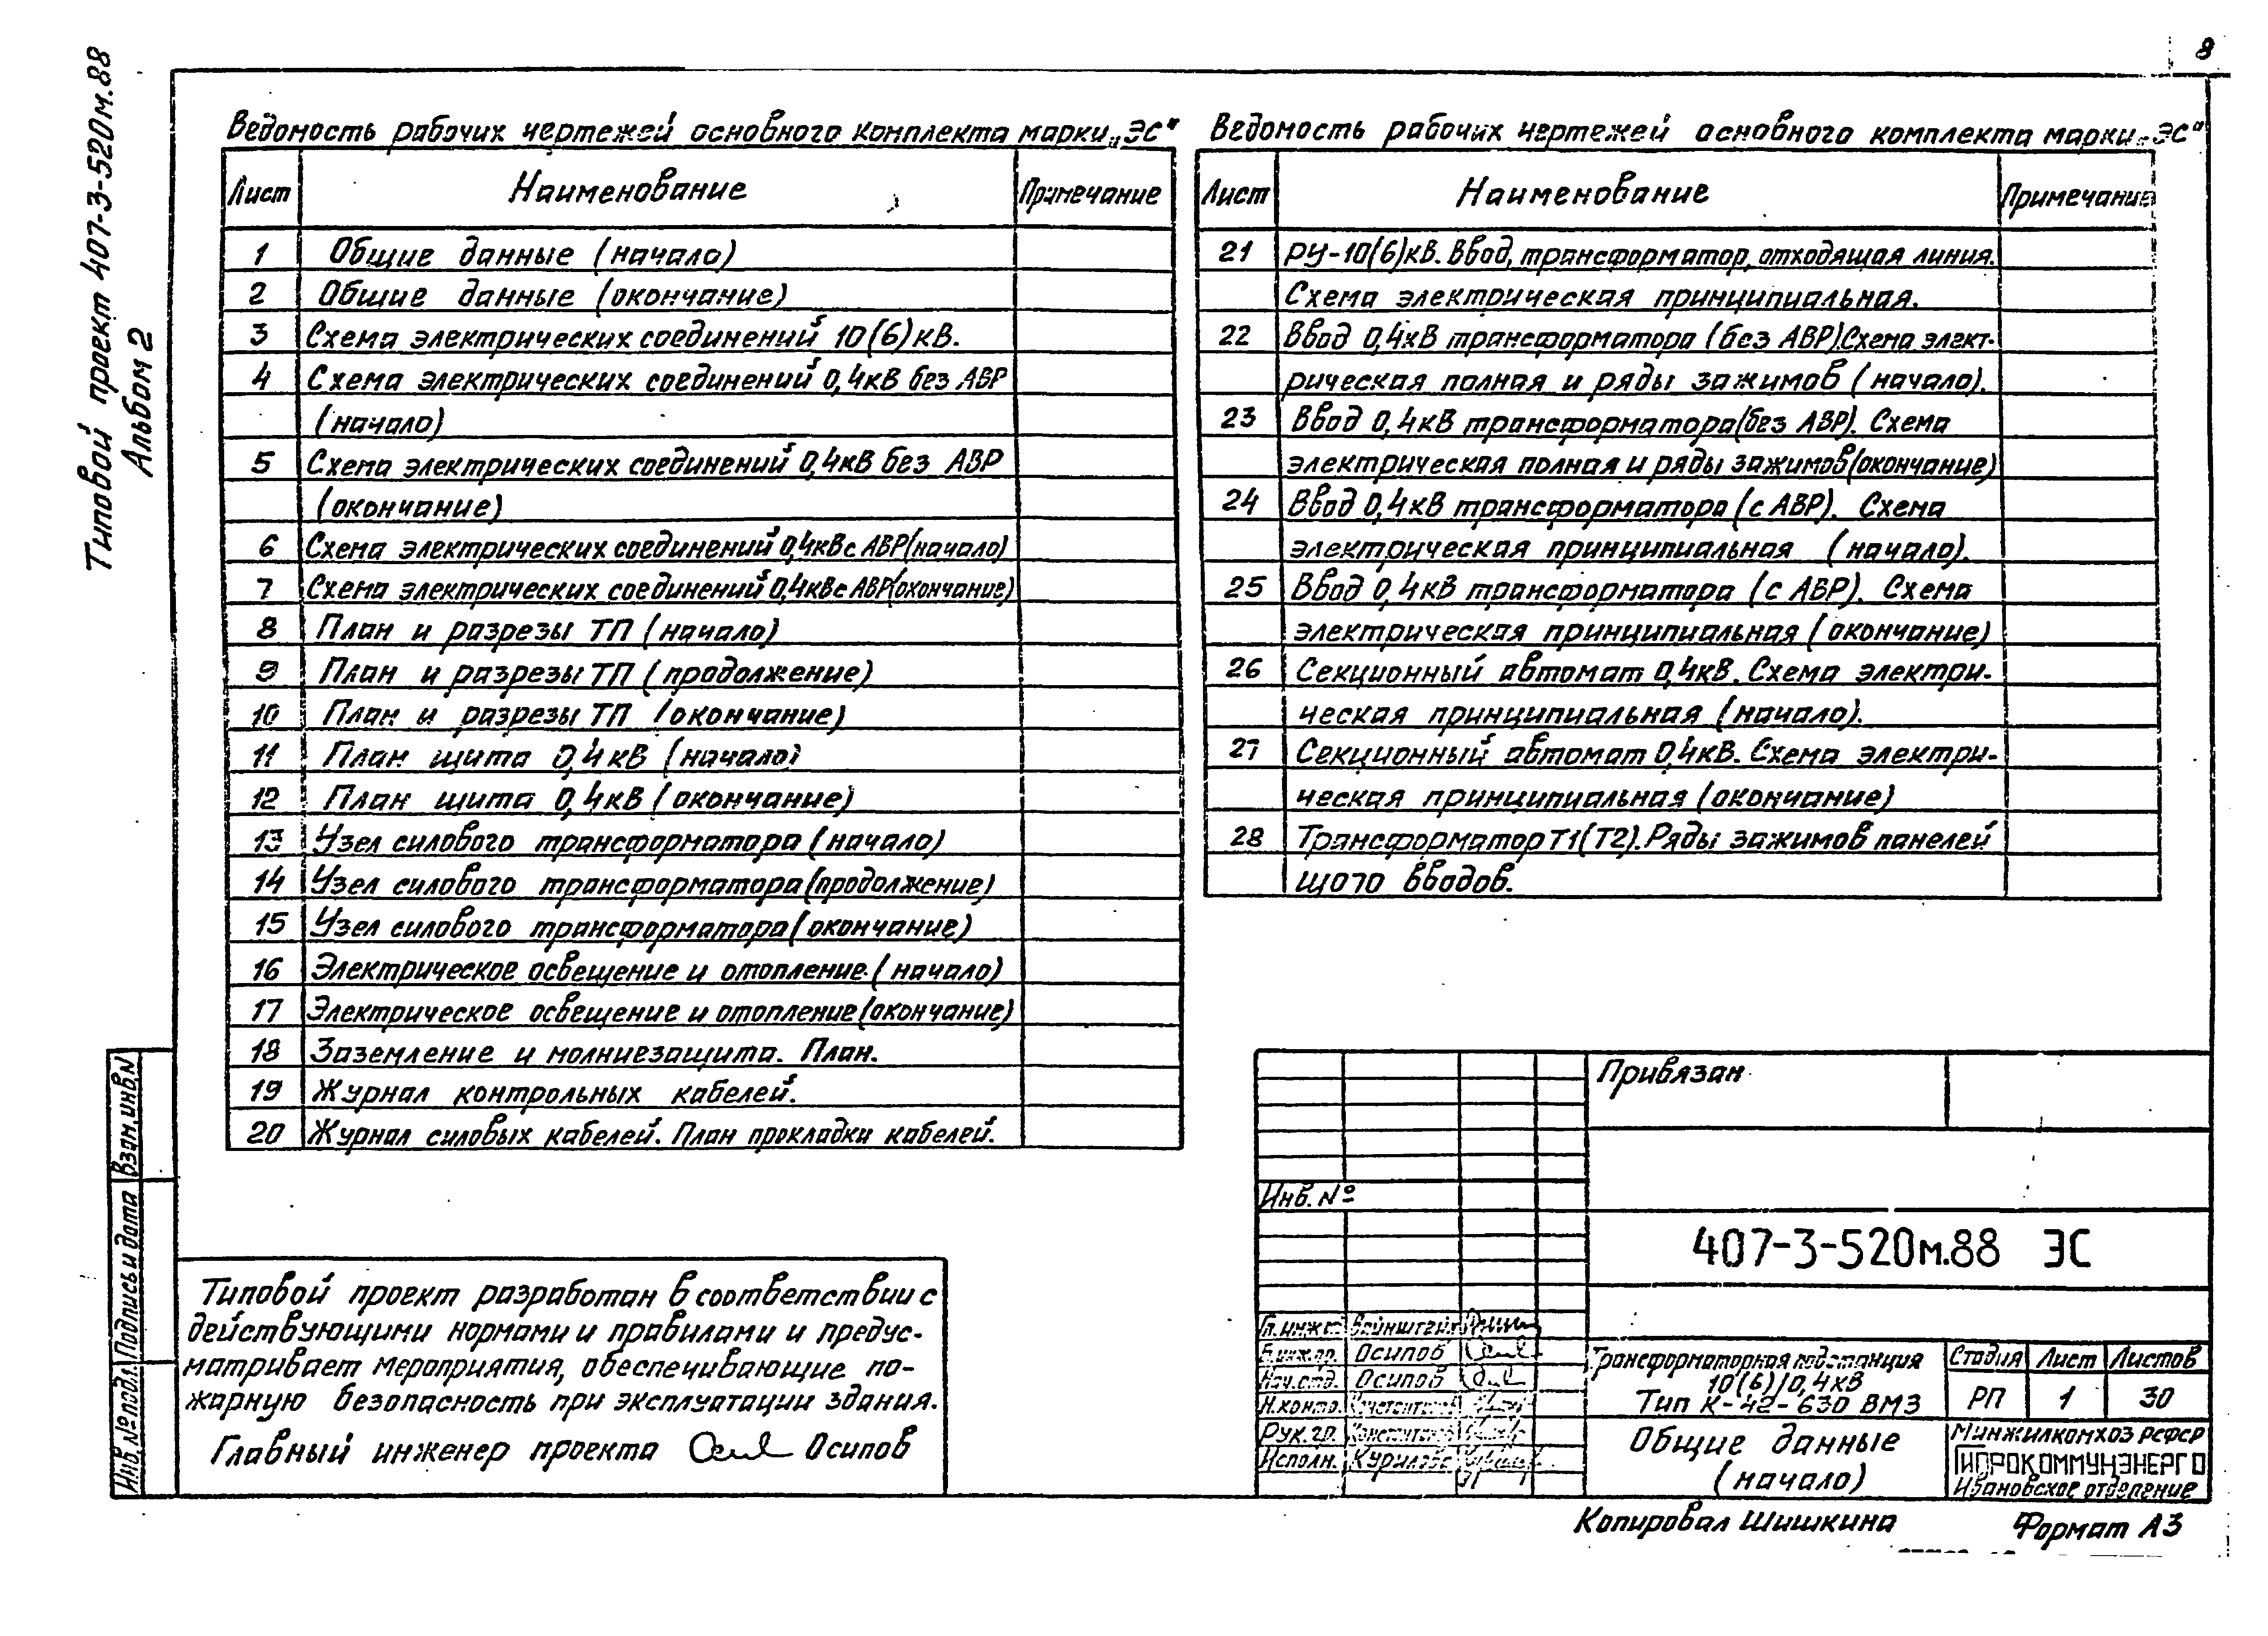 8
Типовой проект 407-3-520м.88
Альбом 2
Ведомость рабочих чертежей основного комплекта марки „ЭС"
Лист Наименование Примечание
1 Общие данные (начало)
2 Общие данные (окончание)
3 Схема электрических соединений 10(6)кВ.
4 Схема электрических соединений 0,4кВ без АВР
(начало)
5 Схема электрических соединений 0,4кВ без АВР
(окончание)
6 Схема электрических соединений 0,4кВ с АВР (начало)
7 Схема электрических соединений 0,4кВ с АВР (окончание)
8 План и разрезы ТП (начало)
9 План и разрезы ТП (продолжение)
10 План и разрезы ТП (окончание)
11 План щита 0,4кВ (начало)
12 План щита 0,4кВ (окончание)
13 Узел силового трансформатора (начало)
14 Узел силового трансформатора (продолжение)
15 Узел силового трансформатора (окончание)
16 Электрическое освещение и отопление (начало)
17 Электрическое освещение и отопление (окончание)
18 Заземление и молниезащита. План.
19 Журнал контрольных кабелей.
20 Журнал силовых кабелей. План прокладки кабелей.
Ведомость рабочих чертежей основного комплекта марки „ЭС"
Лист Наименование Примечание
21 РУ-10(6)кВ. Ввод, трансформатор, отходящая линия.
Схема электрическая принципиальная.
22 Ввод 0,4кВ трансформатора (без АВР). Схема элект-
рическая полная и ряды зажимов (начало).
23 Ввод 0,4кВ трансформатора (без АВР). Схема
электрическая полная и ряды зажимов (окончание)
24 Ввод 0,4кВ трансформатора (с АВР). Схема
электрическая принципиальная (начало).
25 Ввод 0,4кВ трансформатора (с АВР). Схема
электрическая принципиальная (окончание)
26 Секционный автомат 0,4кВ. Схема электри-
ческая принципиальная (начало).
27 Секционный автомат 0,4кВ. Схема электри-
ческая принципиальная (окончание)
28 Трансформатор Т1(Т2). Ряды зажимов панелей
ЩО70 вводов.
Взам.инв.N
Подпись и дата
Инв.№ подл.
Типовой проект разработан в соответствии с
действующими нормами и правилами и предус-
матривает мероприятия, обеспечивающие по-
жарную безопасность при эксплуатации здания.
Главный инженер проекта Осипов
Привязан
Инв. №
407-3-520м.88 ЭС
Гл.инж. Вайнштейн
Осипов
Нач.отд. Осипов
Н.контр.
Рук.гр.
Исполн.
Трансформаторная подстанция
10(6)/0,4кВ
Тип К-42-630 ВМ3
Стадия Лист Листов
РП 1 30
Общие данные
(начало)
Минжилкомхоз РСФСР
ГИПРОКОММУНЭНЕРГО
Ивановское отделение
Копировал Шишкина
Формат А3